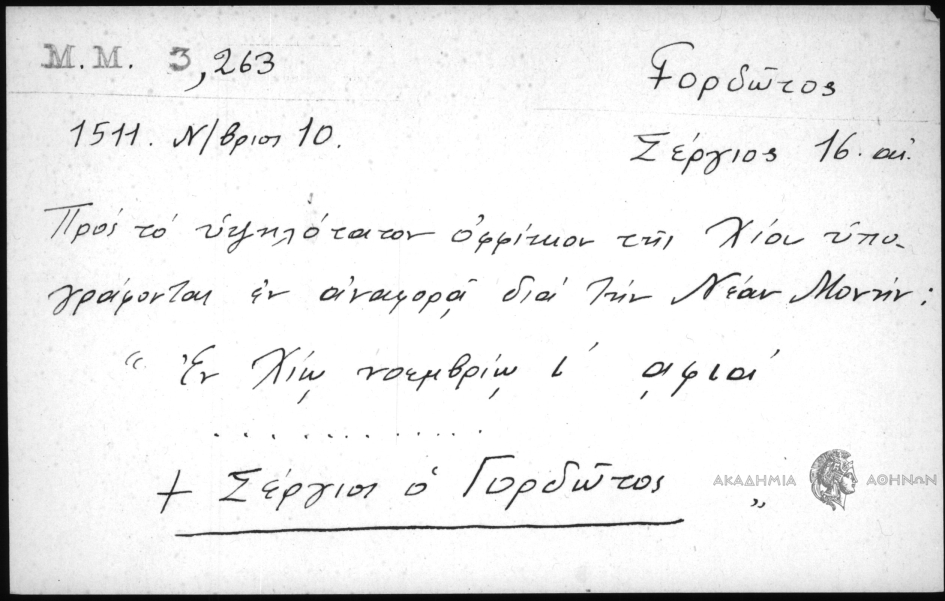 Μ.Μ. 3,263
Γορδῶτος
1511. Ν/βριος 10.
Σέργιος 16. αἰ.
Πρός τό ὑψηλότατον ὀφφίκιον τῆς Χίου ὑπο-
γράφονται ἐν ἀναφορᾷ διά τήν Νέαν Μονήν:
“ Ἐν Χίῳ νοεμβρίῳ ι΄ ͵αφια΄
. . . . . . . . . . . .
+ Σέργιος ὁ Γορδῶτος „
ΑΚΑΔΗΜΙΑ ΑΘΗΝΩΝ